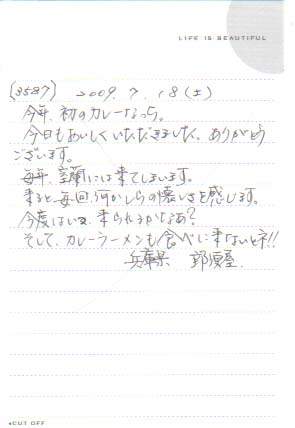 LIFE IS BEAUTIFUL
(3587) 2009. 7. 18 (土)
今年、初のカレーなっち。
今日もおいしくいただきました。ありがとう
ございます。
毎年、室蘭には来てしまいます。
来ると、毎回、何かしらの懐しさを感じます。
今度はいつ、来られるかなあ?
そして、カレーラーメンも食べに来ないとネ!!
兵庫県
CUT OFF